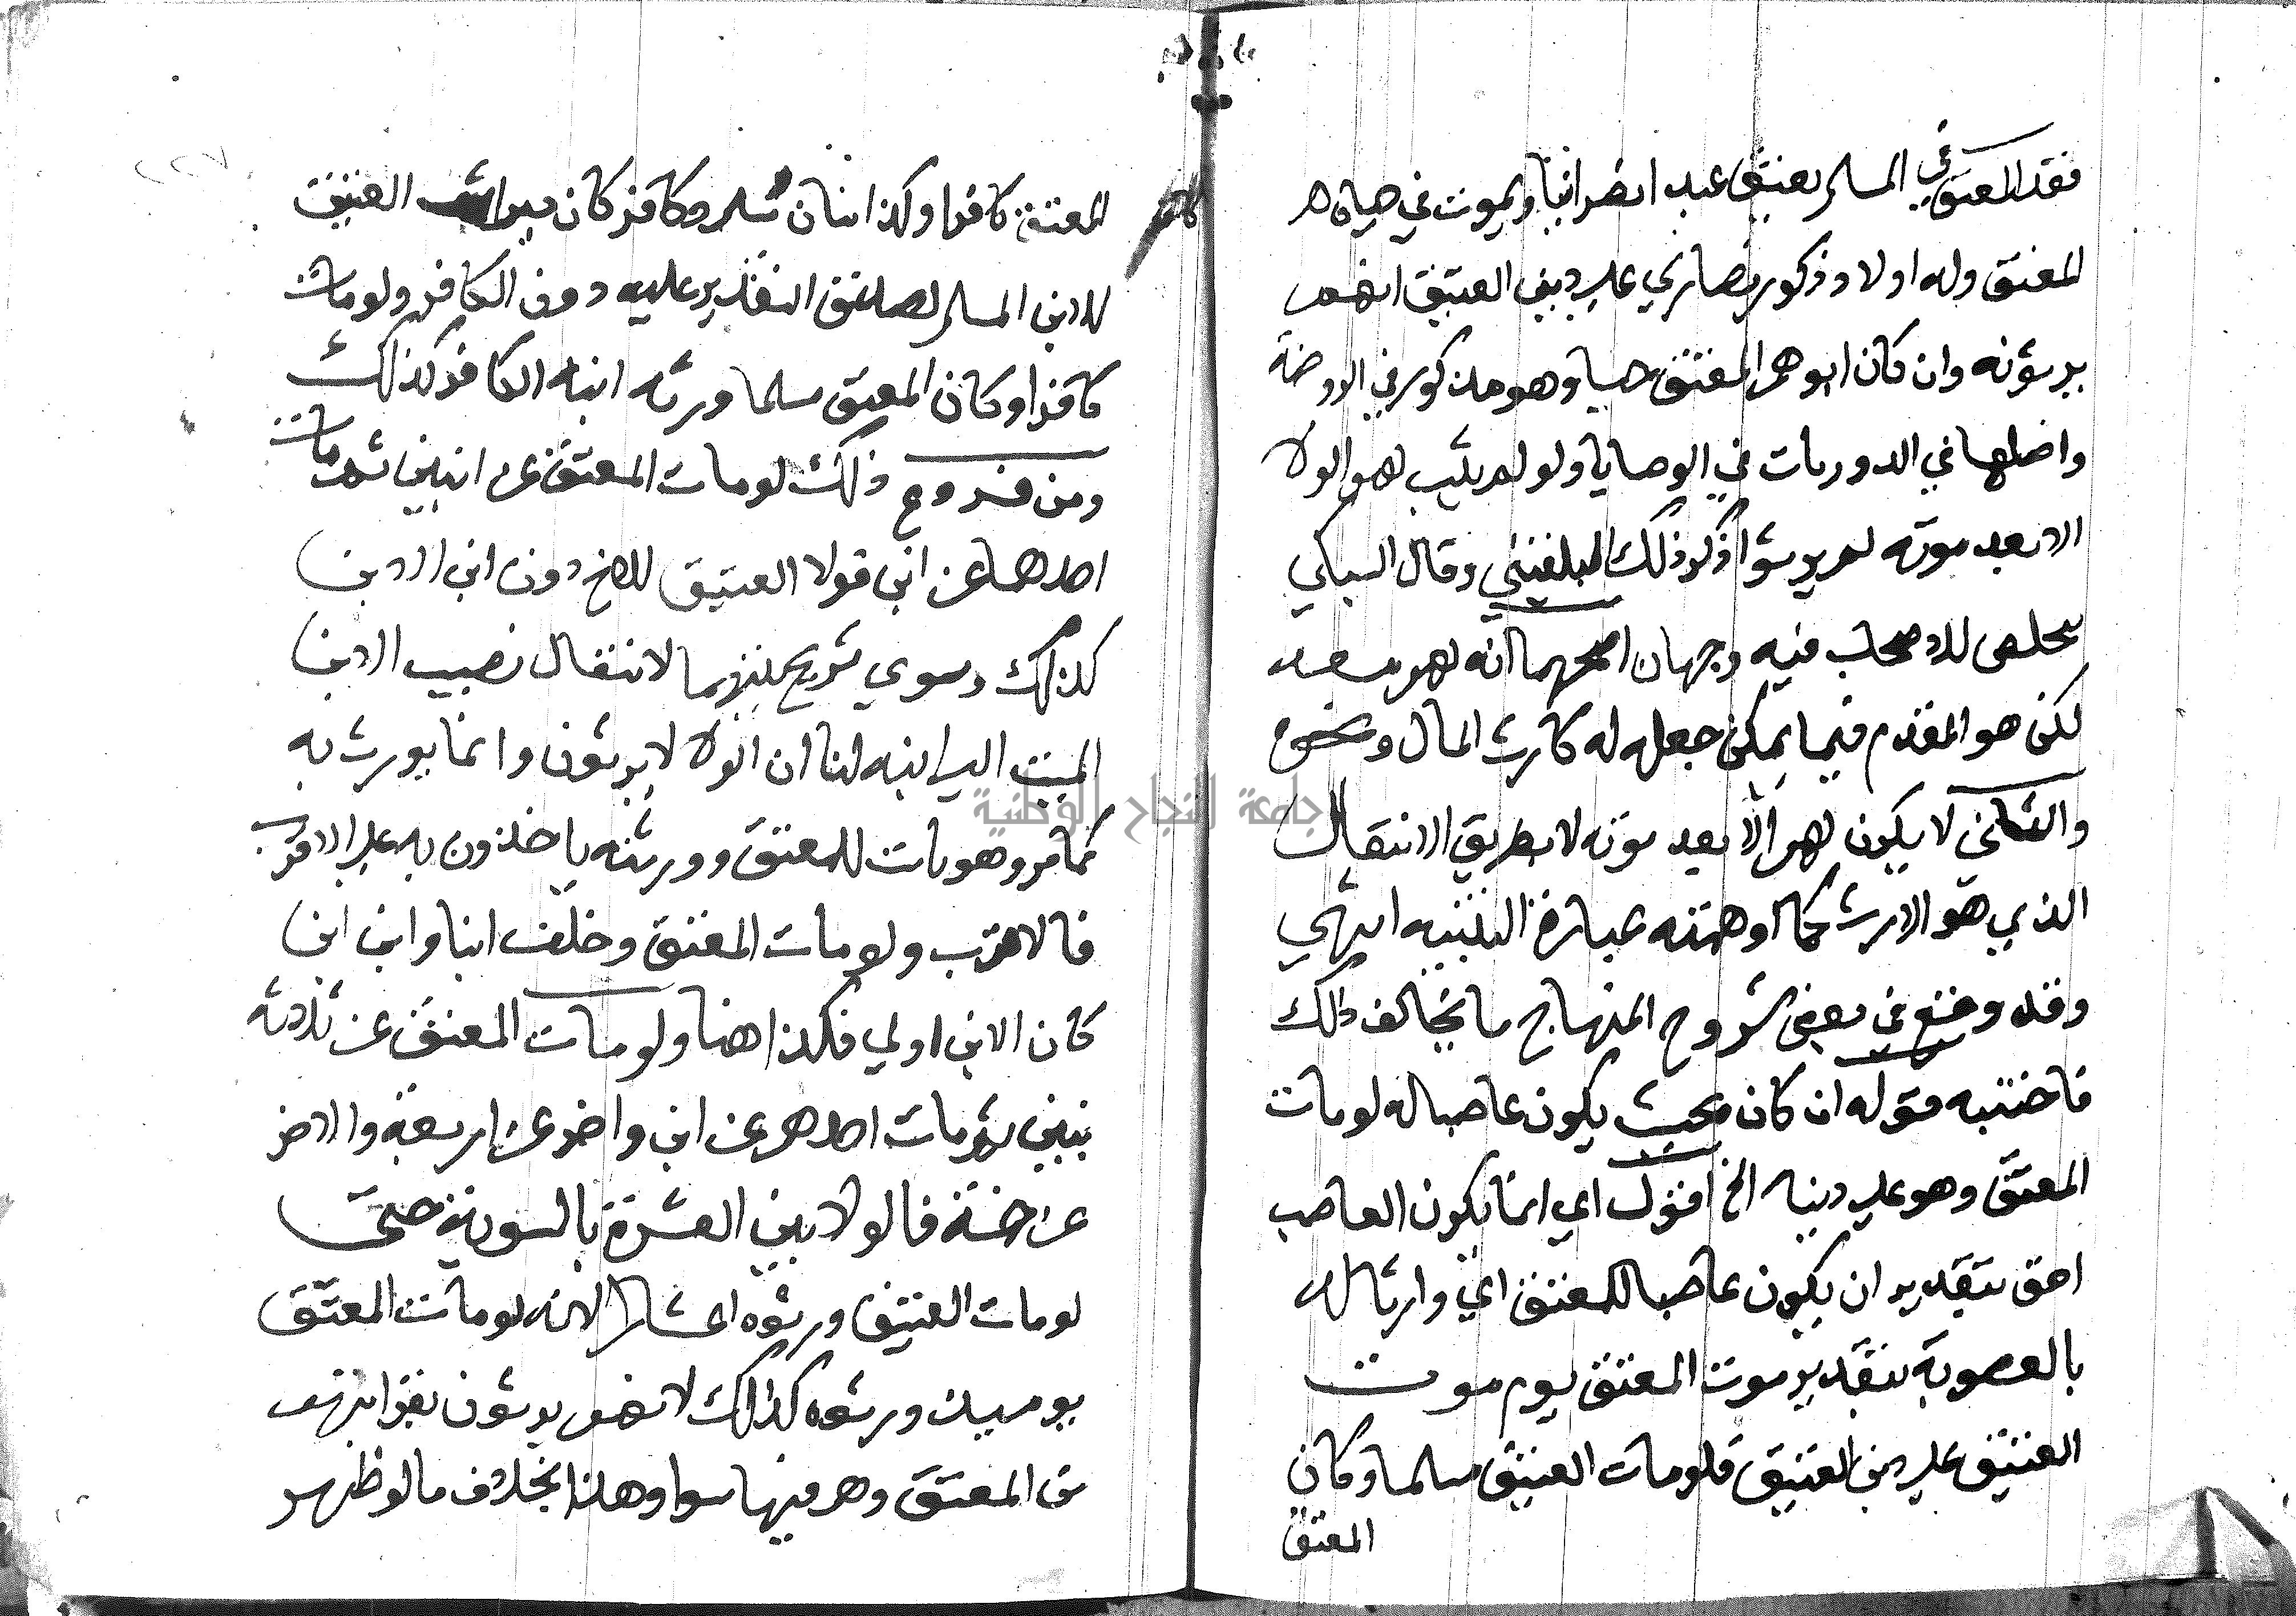 فقد العتق في المسلم يعتق عبدا نصرانيا ويموت في حياة
المعتق وله اولاد ذكور نصاري علي دين العتيق انهم
يرثونه وان كان ابوهم المعتق حيا وهو مذكور في الروضة
واصلها في الدوريات في الوصايا ولو لم يثبت لهم الولا
الا بعد موته لم يرثوا ذكر ذلك البلقيني وقال السبكي
يتخلص للاصحاب فيه وجهان اصحهما انه لهم معه
لكن هو المقدم فيما يمكن جعله له كارث المال ونحوه
والثاني لا يكون لهم الا بعد موته لا بطريق الانتقال
الذي هو الارث كما اوهمته عبارة التنبيه انتهي
وقد وقع في بعض شروح المنهاج ما يخالف ذلك
فاجتنبه قوله ان كان بحيث يكون عاصبا له لو مات
المعتق وهو علي دينه الخ اقول اي انما يكون العاصب
احق بتقدير ان يكون عاصبا للمعتق اي وارثا له
بالعصوبة بتقدير موت المعتق يوم موت
العتيق علي دين العتيق فلو مات العتيق مسلما وكان
المعتق
المعتق كافرا وله ابنان مسلم وكافر كان ميراث العتيق
للابن المسلم لصدق التقدير عليه دون الكافر ولو مات
كافرا وكان المعتق مسلما ورثه ابنه الكافر كذلك
ومن فروع ذلك لو مات المعتق عن ابنين ثم مات
احدهما عن ابن فولا العتيق للاخ دون ابن الابن
كذلك وسوي شريح بينهما لانتقال نصيب الابن
الميت الي ابنه لنا ان الولا لا يورث وانما يورث به
كما مر وهو بات للمعتق وورثته ياخذون به علي الاقرب
فالاقرب ولو مات المعتق وخلف ابنا وابن ابن
كان الابن اولي فكذا هنا ولو مات المعتق عن ثلاثة
بنين ثم مات احدهم عن ابن واخر عن اربعة والاخر
عن خمسة فالولا بين العشرة بالسوية حتي
لو مات العتيق ورثوه اعشارا لانه لو مات المعتق
يوميذ ورثوه كذلك لانهم يرثون بقرابتهم
من المعتق وهم فيها سوا وهذا بخلاف ما لو ظهر
جامعة النجاح الوطنية